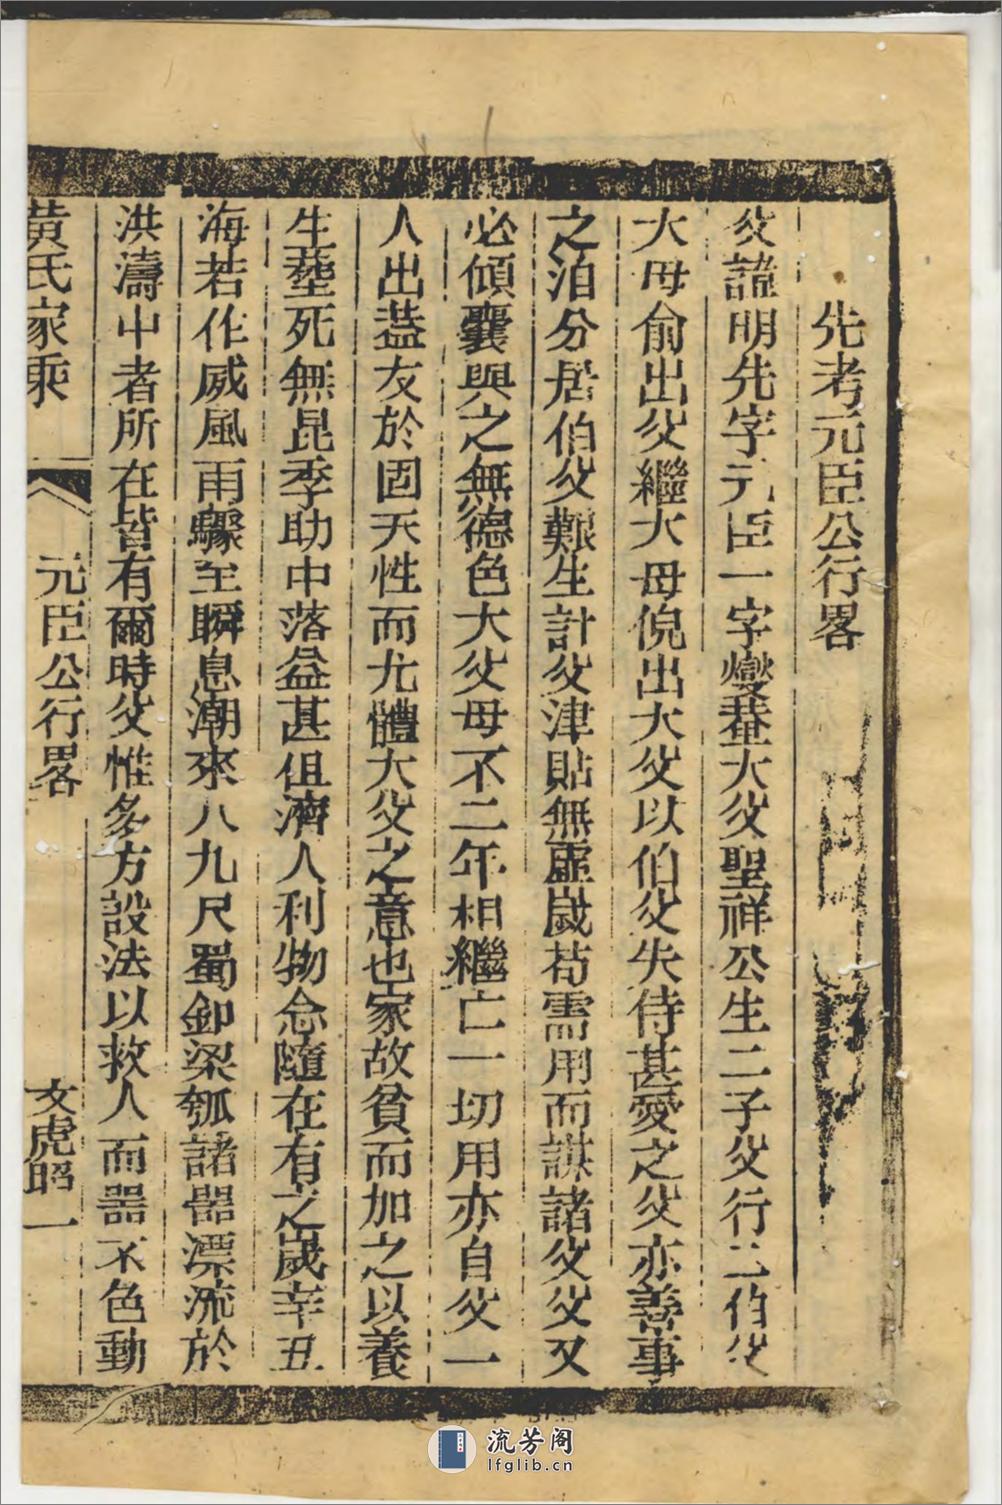 先考元臣公行畧
父諱明先字元臣一字燮菴大父聖祥公生二子父行二伯父
大母俞出父繼大母倪出大父以伯父失侍甚愛之父亦善事
之洎分居伯父艱生計父津貼無虛歲苟需用而謀諸父父又
必傾囊與之無德色大父母不二年相繼亡一切用亦自父一
人出葢友於固天性而尤體大父之意也家故貧而加之以養
生塟死無昆季助中落益甚但濟人利物念隨在有之歲辛丑
海若作威風雨驟至瞬息潮來八九尺蜀卹梁瓠諸器漂流於
洪濤中者所在皆有爾時父惟多方設法以救人而器不色動
黃氏家乘
元臣公行畧
文虎昭
一
流芳阁
lfglib.cn